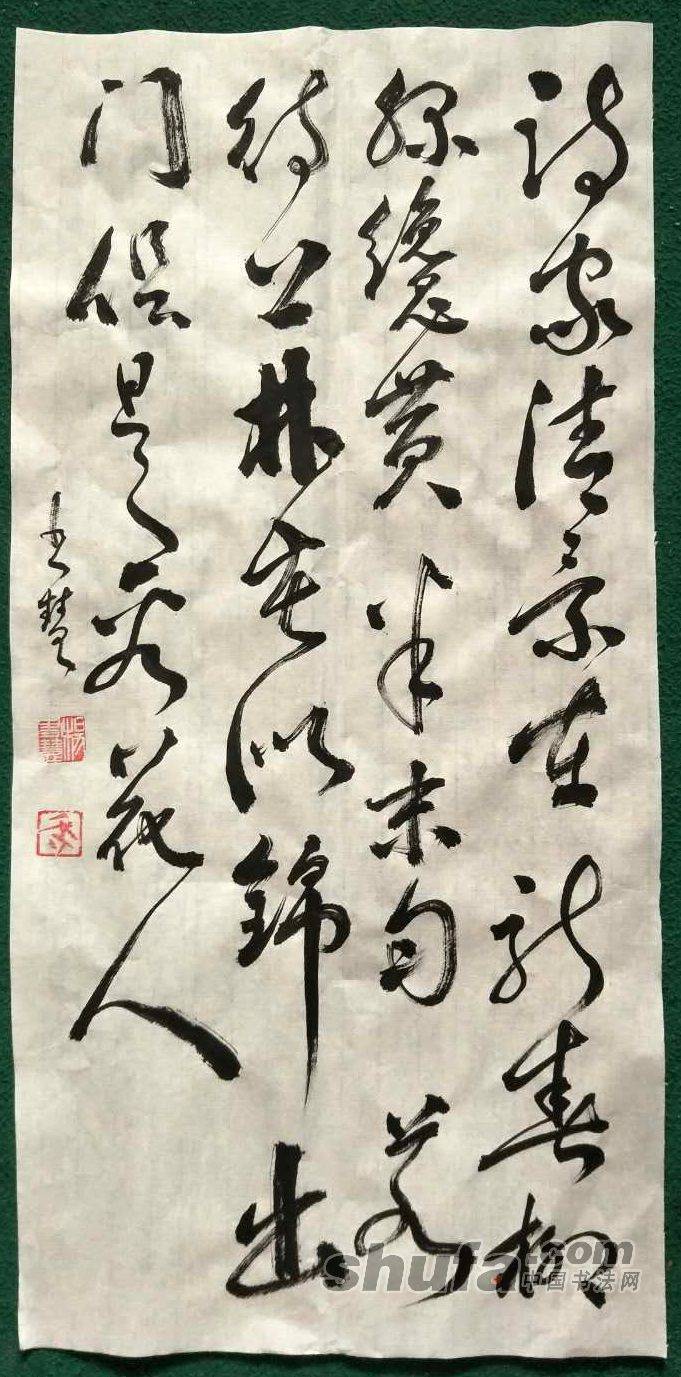 詩家清景在新春柳
綠纔黄半未匀若
待上林花似錦出
门俱是看花人
慧
shufa.com
中国书法网